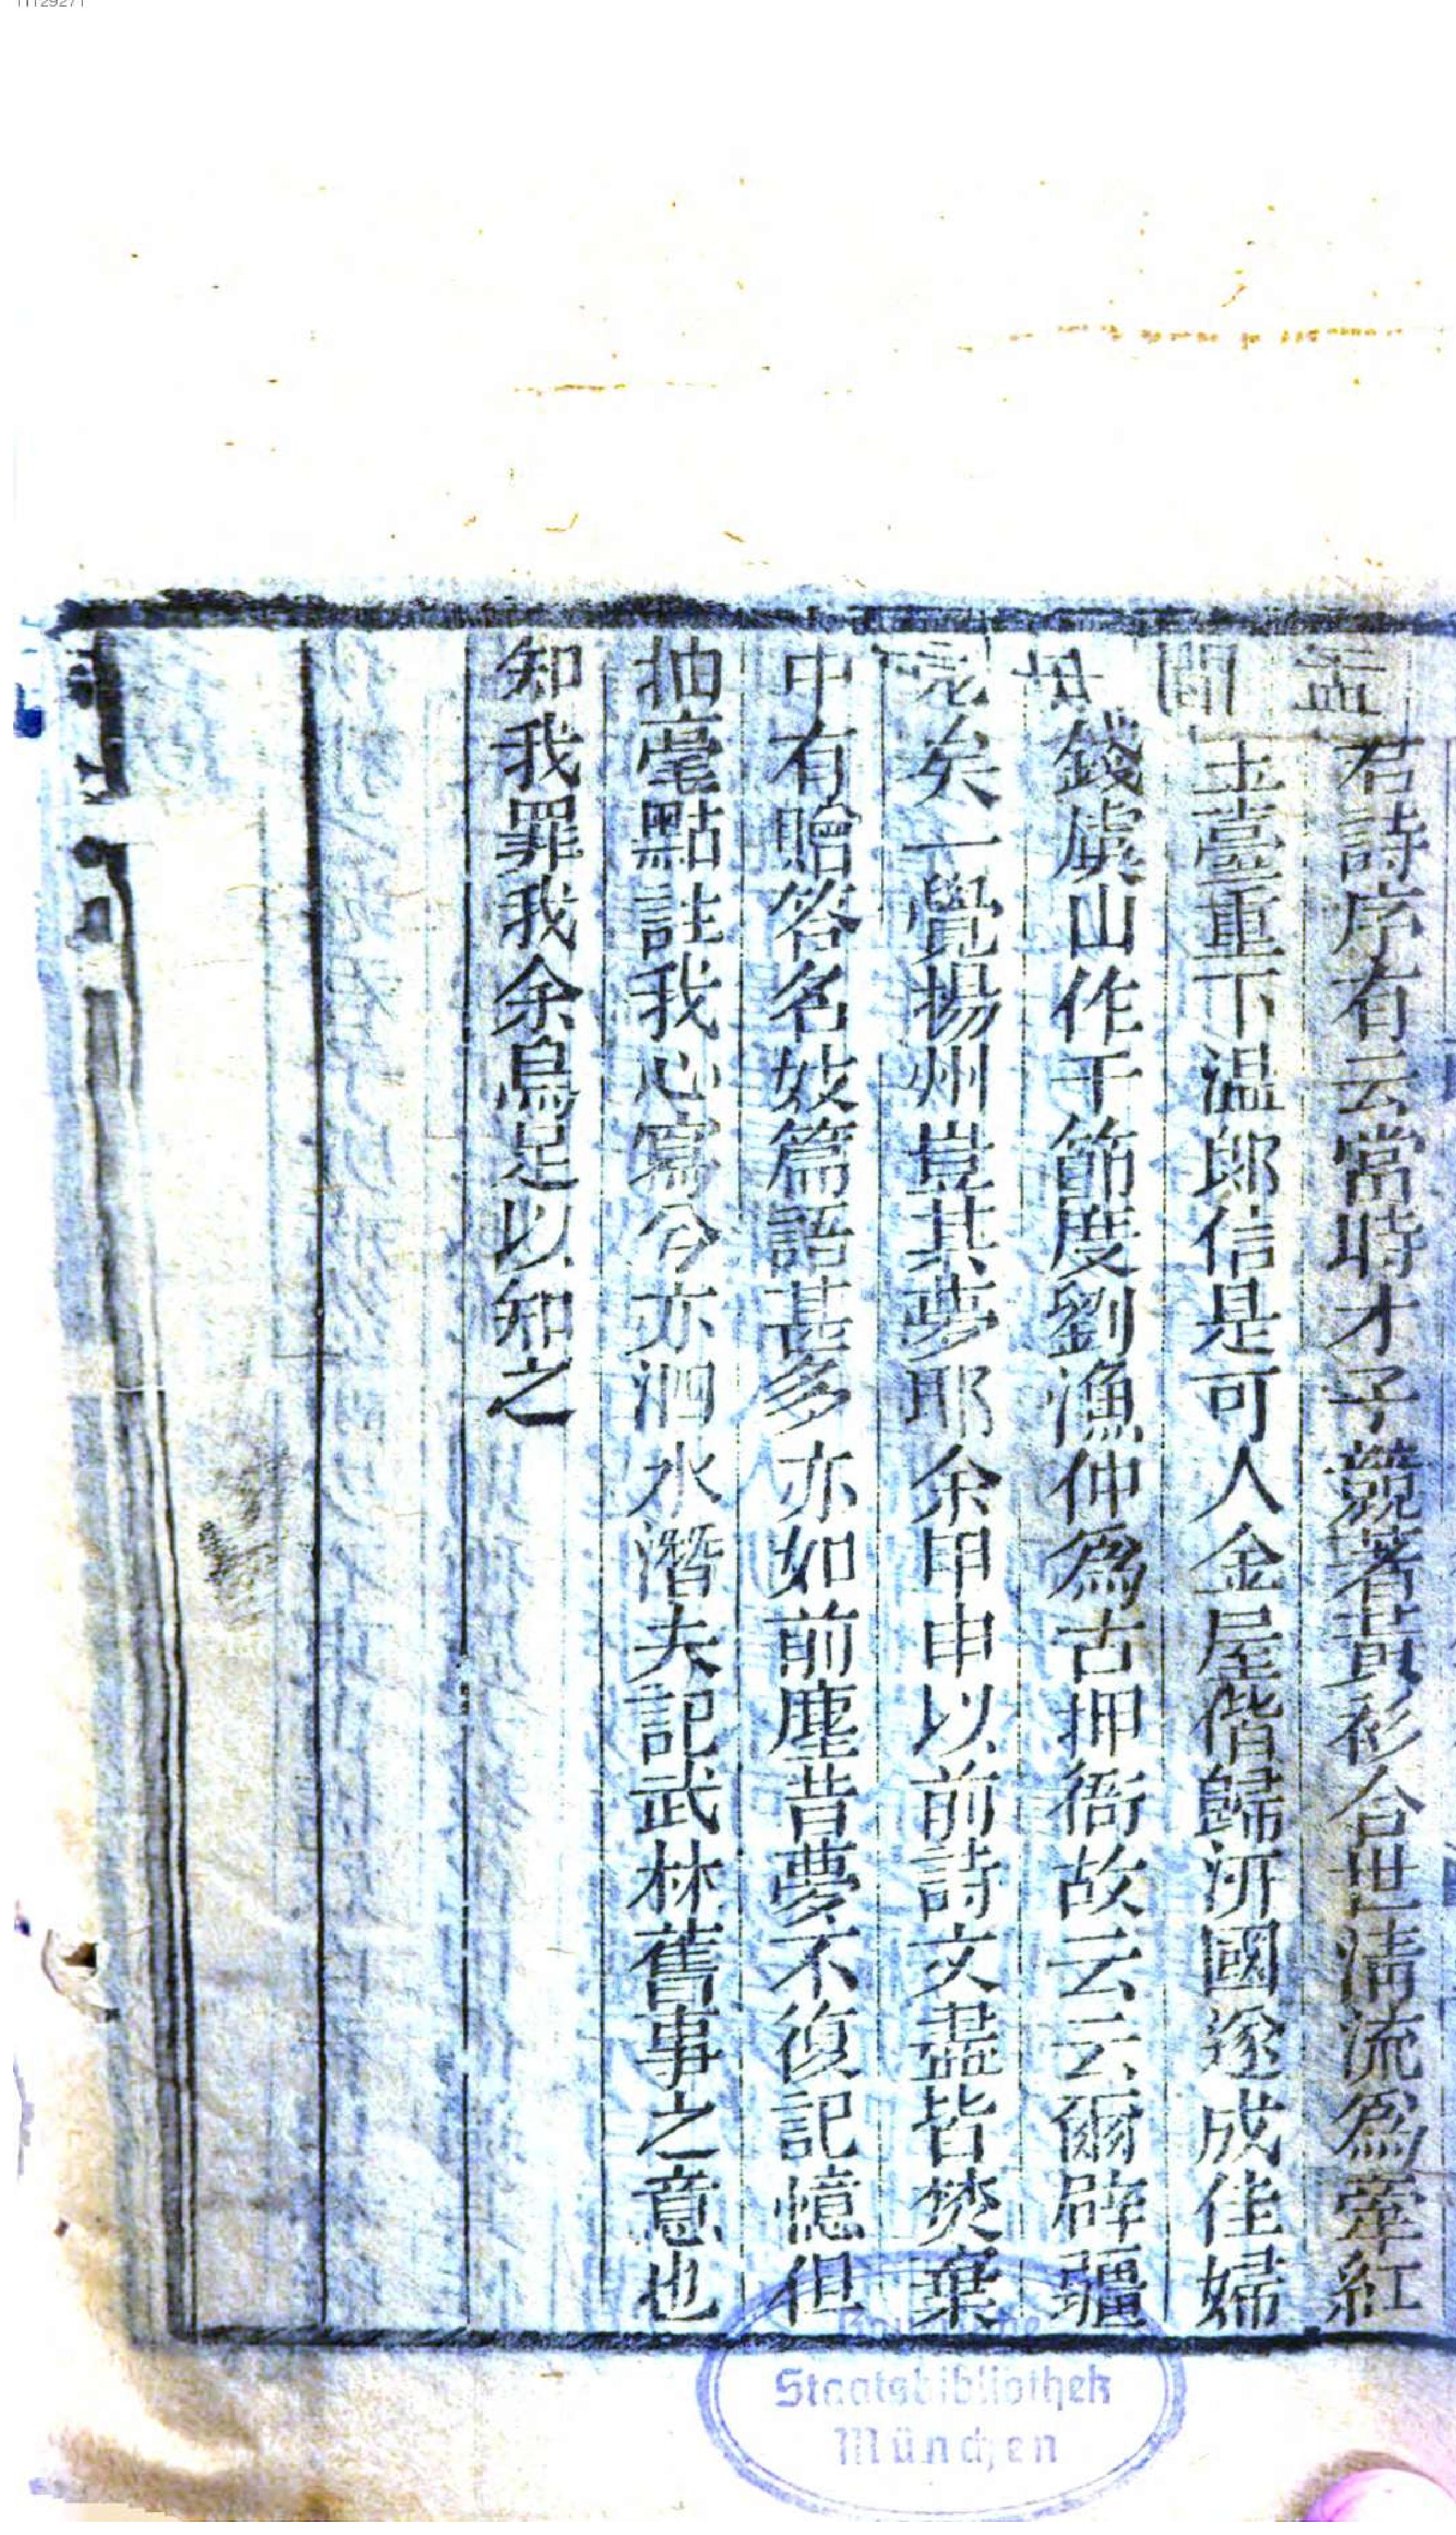 君詩序有云當時才子競著黃衫合世清流為牽紅
玉臺重下溫郎信是可人金屋偕歸汧國遂成佳婦
錢虞山作于節度劉漁仲為古押衙故云云爾辟疆
矣一覺揚州豈其夢耶余甲申以前詩文盡皆焚棄
中有贈答名妓篇語甚多亦如前塵昔夢不復記憶但
抽毫點註我心寫兮亦泗水潛夫記武林舊事之意也
知我罪我余烏足以知之
Staatsbibliothek
München